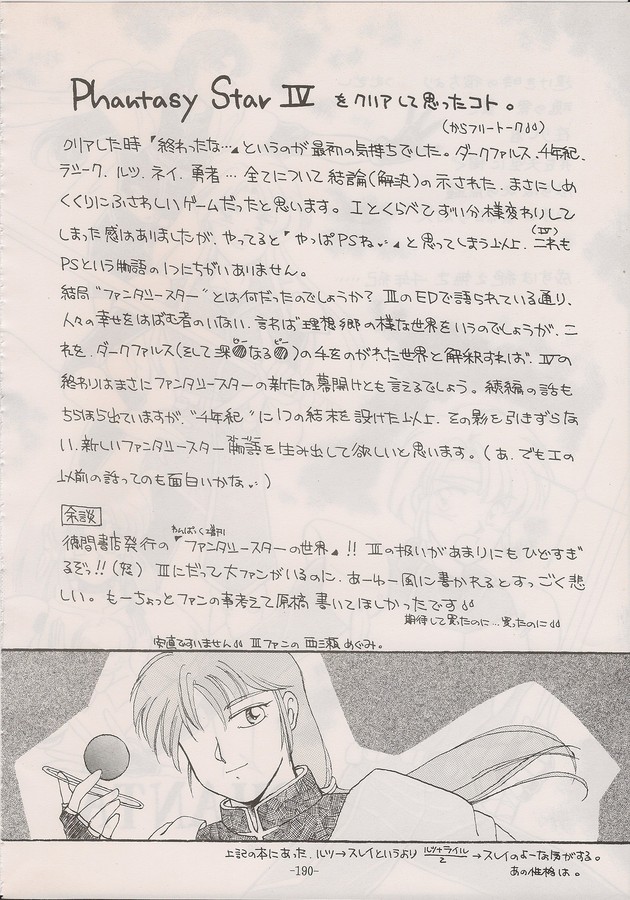 Phantasy Star Ⅳ をクリアして思ったコト。
(からフリートーク♪♪)
クリアした時『終わったな…』というのが最初の気持ちでした。ダークファルス、千年紀、
ラシーク、ルツ、ネイ、勇者…全てについて結論(解決)の示された、まさにしめ
くくりにふさわしいゲームだったと思います。Ⅰとくらべてずい分様変わりして
しまった感はありましたが、やってると『やっぱPSね』と思ってしまう以上、これも
(Ⅳ)
PSという物語の1つにちがいありません。
結局"ファンタシースター"とは何だったのでしょうか? ⅢのEDで語られている通り、
人々の幸せをはばむ者のいない、言わば理想郷の様な世界をいうのでしょうが、こ
れを、ダークファルス(そして深●なる●)の手をのがれた世界と解釈すれば、Ⅳの
終わりはまさにファンタシースターの新たな幕開けとも言えるでしょう。続編の話も
ちらほら出ていますが、"千年紀"に1つの結末を設けた以上、その影を引きずらな
い、新しいファンタシースター物語を生み出して欲しいと思います。(あ、でもⅠの
以前の話ってのも面白いかな)
余談
徳間書店発行の『ファンタシースターの世界』!! Ⅲの扱いがあまりにもひどすぎ
るぞ!!(怒) Ⅲにだって大ファンがいるのに、あーゆー風に書かれるとすっごく悲
しい。もーちょっとファンの事考えて原稿書いてほしかったです♪♪
期待して買ったのに…買ったのに♪♪
安直ですいません♪♪ Ⅲファンの 西三瀬 めぐみ。
上記の本にあった、ルツ→スレイというより ルツ+ライル/2 →スレイのよーな気がする。
あの性格は。
-190-